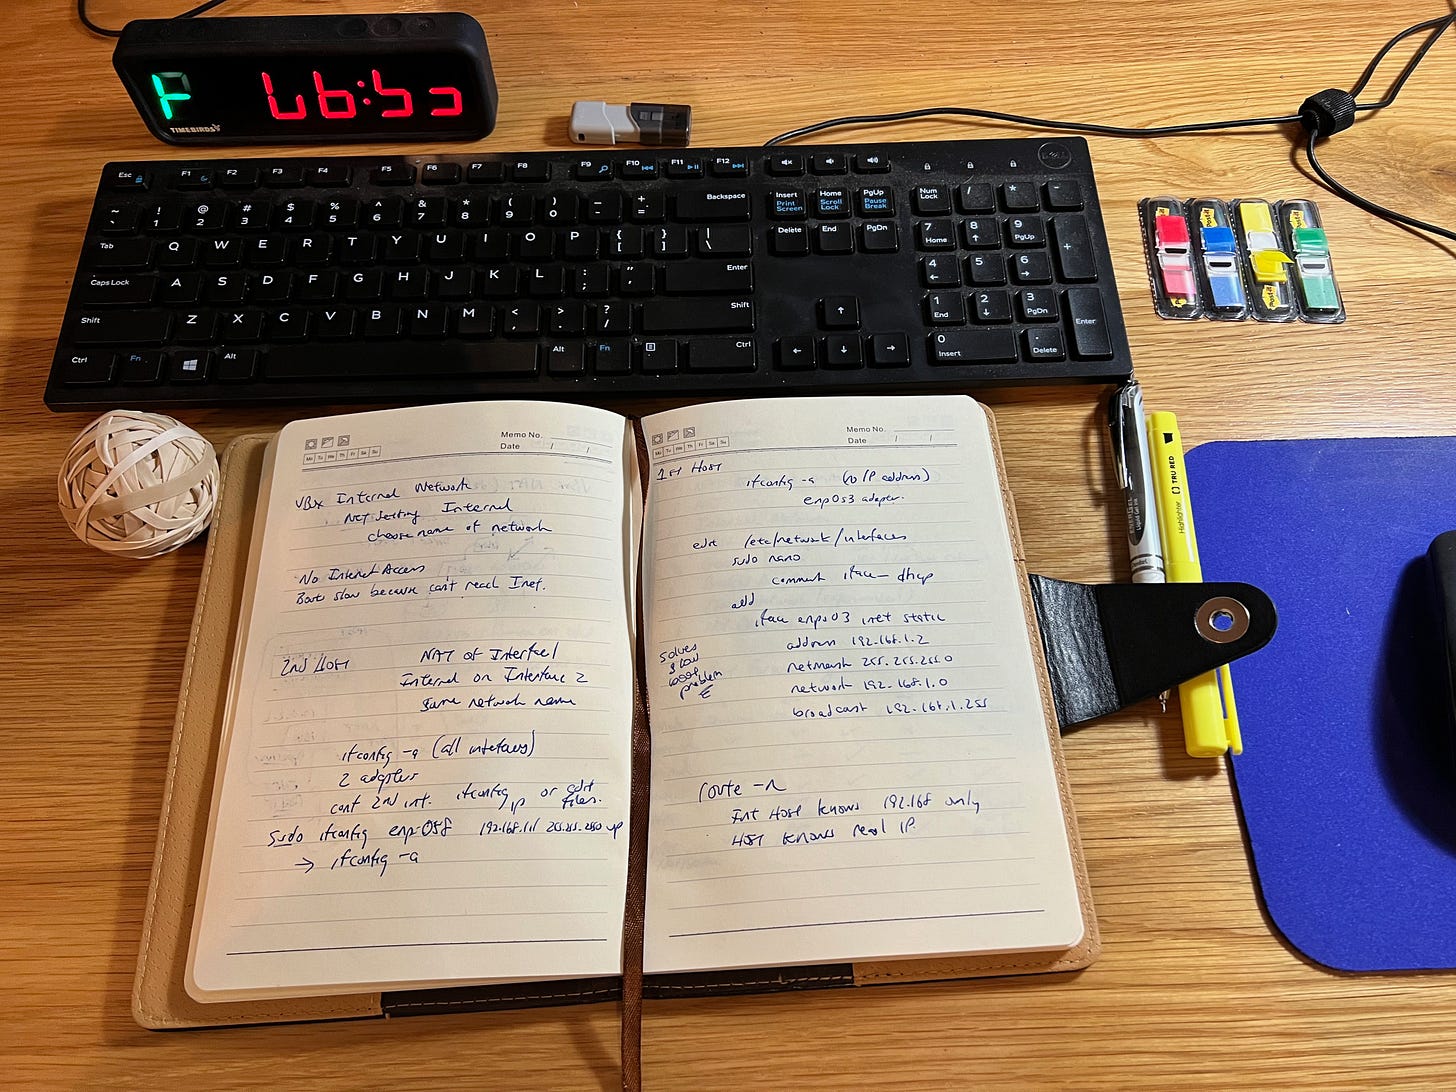 TIMEBIRDS
DELL
Esc F1 F2 F3 F4 F5 F6 F7 F8 F9 F10 F11 F12
~ ! @ # $ % ^ & * ( ) _ + Backspace
` 1 2 3 4 5 6 7 8 9 0 - =
Insert Home PgUp Num Lock / * -
Print Screen Scroll Lock Pause Break
Tab Q W E R T Y U I O P { } |
[ ] \
Delete End PgDn 7 Home 8 9 PgUp +
Caps Lock A S D F G H J K L : " Enter
; '
4 5 6
Shift Z X C V B N M < > ? Shift
, . /
1 End 2 3 PgDn Enter
Ctrl Fn Alt Alt Fn Ctrl
0 Insert . Delete
Post-it
Post-it
Post-it
Post-it
ENERGEL
Liquid Gel Ink
Highlighter TRU RED
Memo No.
Date / /
Mo Tu We Th Fr Sa Su
VBx Internal Network
Net setting Internal
choose name of network
No Internet Access
Boots slow because can't reach Inet.
2nd Host NAT of Interface 1
Internal on Interface 2
same network name
ifconfig -a (all interfaces)
2 adapters
conf 2nd int. ifconfig ip or edit files.
sudo ifconfig enp0s8 192.168.1.1 255.255.255.0 up
→ ifconfig -a
Memo No.
Date / /
Mo Tu We Th Fr Sa Su
1st Host
ifconfig -a (no IP address)
enp0s3 adapter.
edit /etc/network/interfaces
sudo nano
comment iface — dhcp
add
iface enp0s3 inet static
address 192.168.1.2
netmask 255.255.255.0
network 192.168.1.0
broadcast 192.168.1.255
solves
slow
boot
problem
route -n
Int Host knows 192.168 only
Host knows real IP.